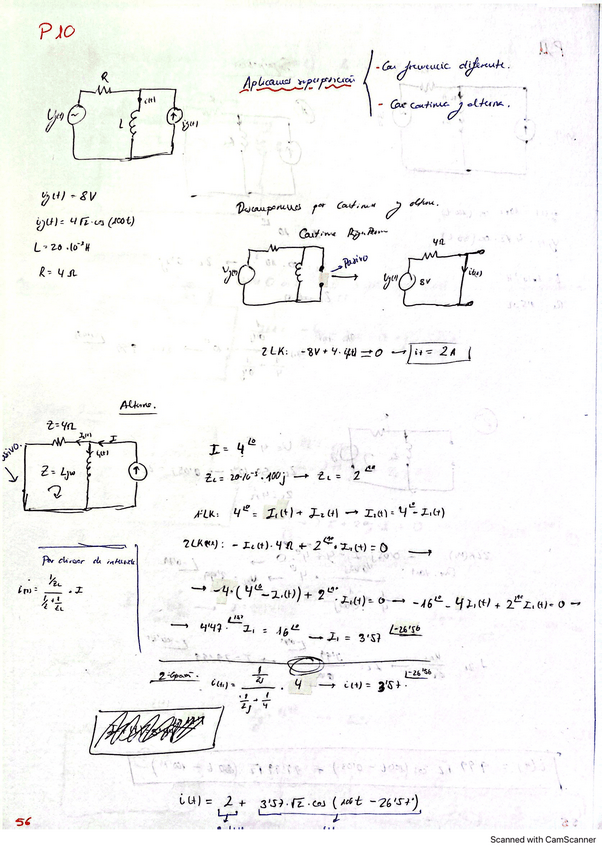 P10
R
i(t)
L
Aplicamos superposición
- Con frecuencia diferente.
- Con continua y alterna.
Vg(t) = 8V
ig(t) = 4√2·cos(100t)
L = 20·10⁻³H
R = 4Ω
Descomponemos por continua y alterna.
Continua
Pasivo
4Ω
Vg(t)
8V
i1(t)
2LK: -8V + 4·i(t) = 0 → i1 = 2A
Alterna.
Z=4Ω
I2(t)
I
I1(t)
Z = Ljω
I = 4∠0
ZL = 20·10⁻³·100j → ZL = 2∠90
1ªLK: 4∠0 = I1(t) + I2(t) → I1(t) = 4∠0 - I1(t)
2LK: -I2(t)·4Ω + 2∠90·I1(t) = 0 →
→ -4·(4∠0 - I1(t)) + 2∠90·I1(t) = 0 → -16∠0 - 4I1(t) + 2∠90 I1(t) = 0 →
→ 4'47 I1 = 16∠0 → I1 = 3'57 ∠-26'56
Por divisor de intensidad
i(t) = 1/ZL / (1/Z + 1/ZL) · I
2ª opción.
i(t) = 1/2j / (1/2j + 1/4) · 4 → i(t) = 3'57·∠-26'56
i(t) = 2 + 3'57·√2·cos(100t - 26'57°)
56
Scanned with CamScanner